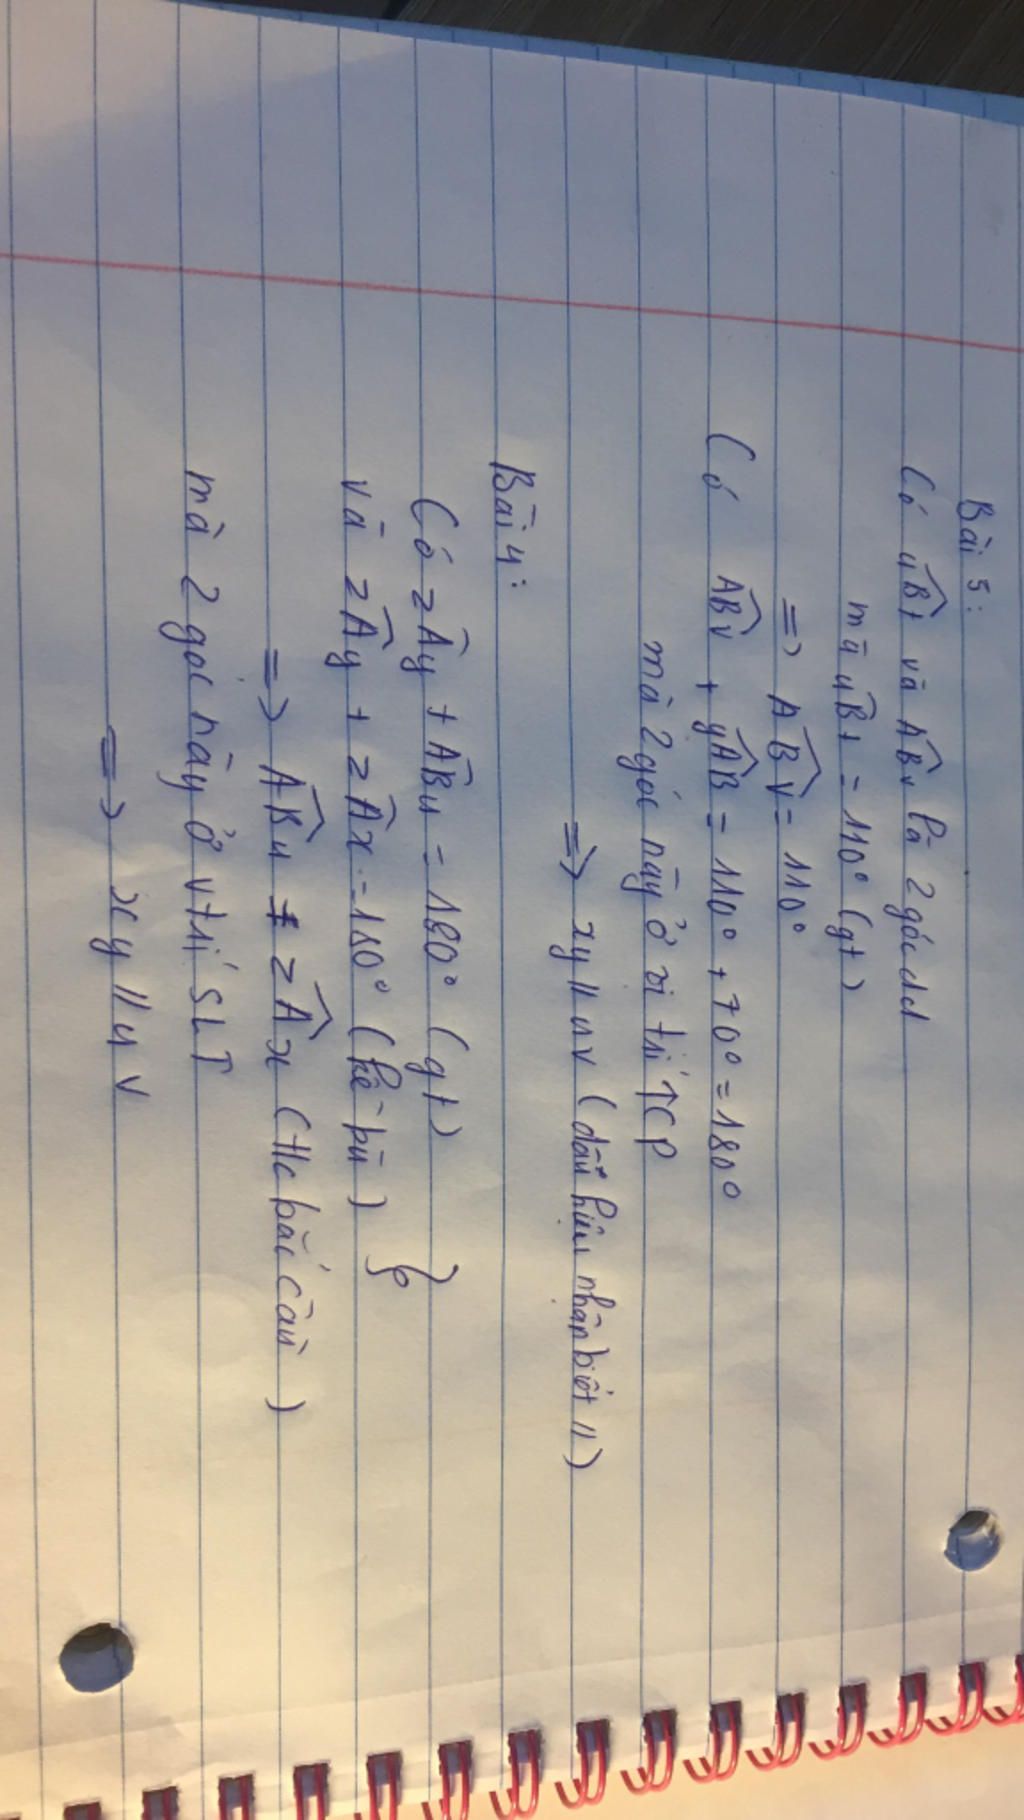 Bài 5:
Có uB̂t và AB̂v là 2 góc đđ
mà uB̂t = 110° (gt)
=> AB̂v = 110°
Có AB̂v + yÂB = 110° + 70° = 180°
mà 2 góc này ở vị trí TCP
=> xy // uv (dấu hiệu nhận biết //)
Bài 4:
Có zÂy + AB̂u = 180° (gt) }
và zÂy + zÂx = 180° (kề bù)
=> AB̂u = zÂx (t/c bắc cầu)
mà 2 góc này ở vtrí SLT
=> xy // uv